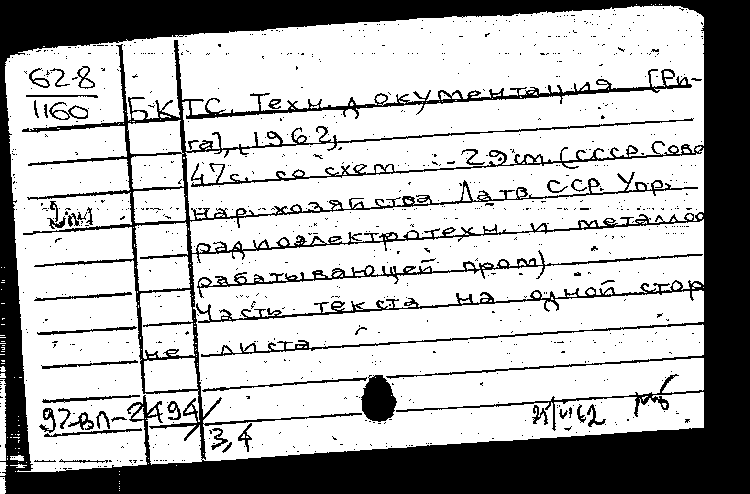 62-8
1160
БКТС. Техн. документация [Ри-
га], [1962],
47с. со схем. 29 см. (СССР. Сове
нар. хозяйства Латв. ССР. Упр.
радиоэлектротехн. и металлоо
рабатывающей пром)
Часть текста на одной стор
не листа
92-вл-2494/
3,4